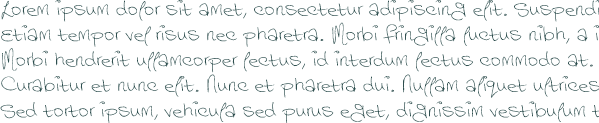 Lorem ipsum dolor sit amet, consectetur adipiscing elit. Suspendi
Etiam tempor vel risus nec pharetra. Morbi fringilla luctus nibh, a i
Morbi hendrerit ullamcorper lectus, id interdum lectus commodo at.
Curabitur et nunc elit. Nunc et pharetra dui. Nullam aliquet ultrices
Sed tortor ipsum, vehicula sed purus eget, dignissim vestibulum t